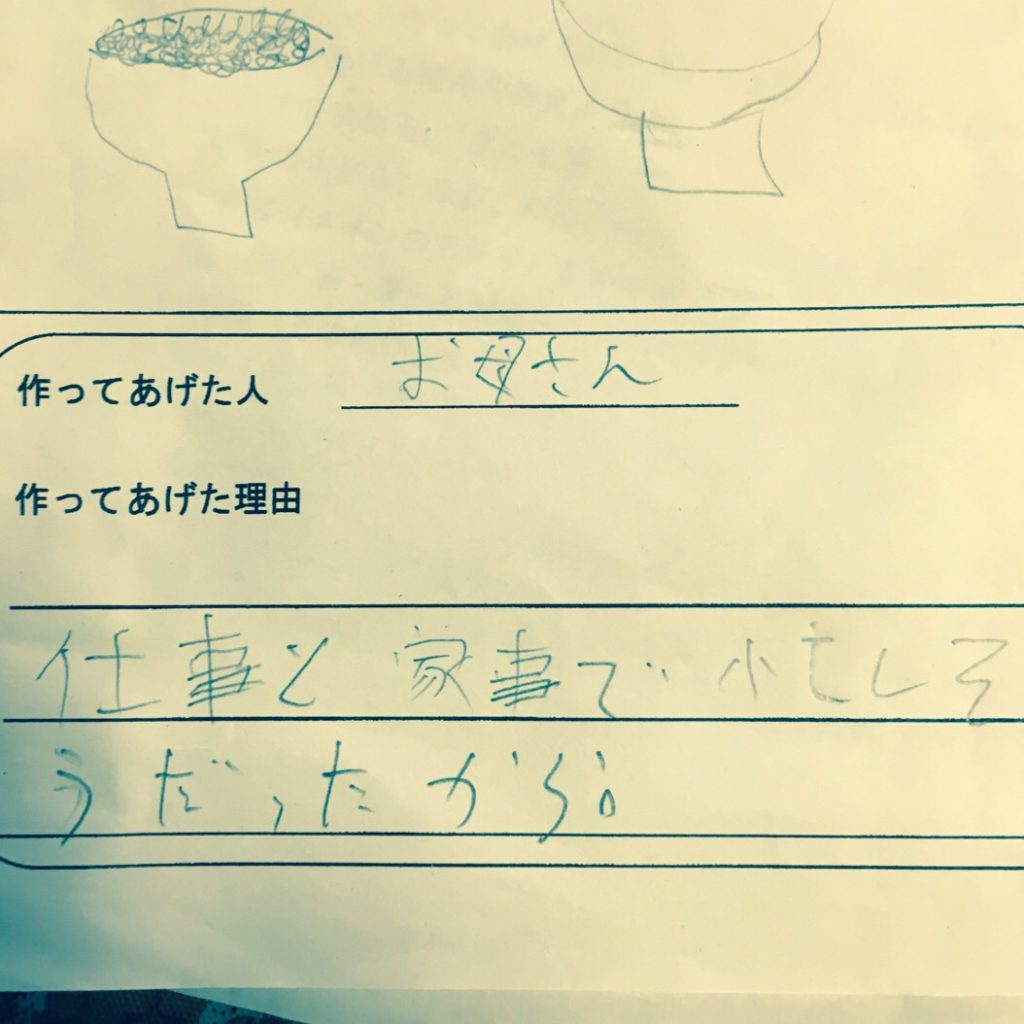 作ってあげた人 お母さん
作ってあげた理由
仕事と家事で忙しそ
うだったから。